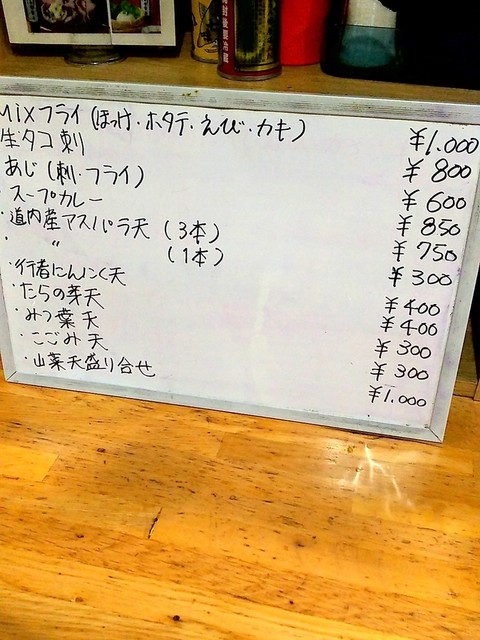 Mixフライ(ほっけ・ホタテ・えび・カキ) ¥1.000
生タコ刺 ¥800
あじ(刺・フライ) ¥600
・スープカレー ¥850
・道内産アスパラ天(3本) ¥750
・ 〃 (1本) ¥300
・行者にんにく天 ¥400
・たらの芽天 ¥400
・みつ葉天 ¥300
・こごみ天 ¥300
・山菜天盛り合せ ¥1.000
開封後要冷蔵